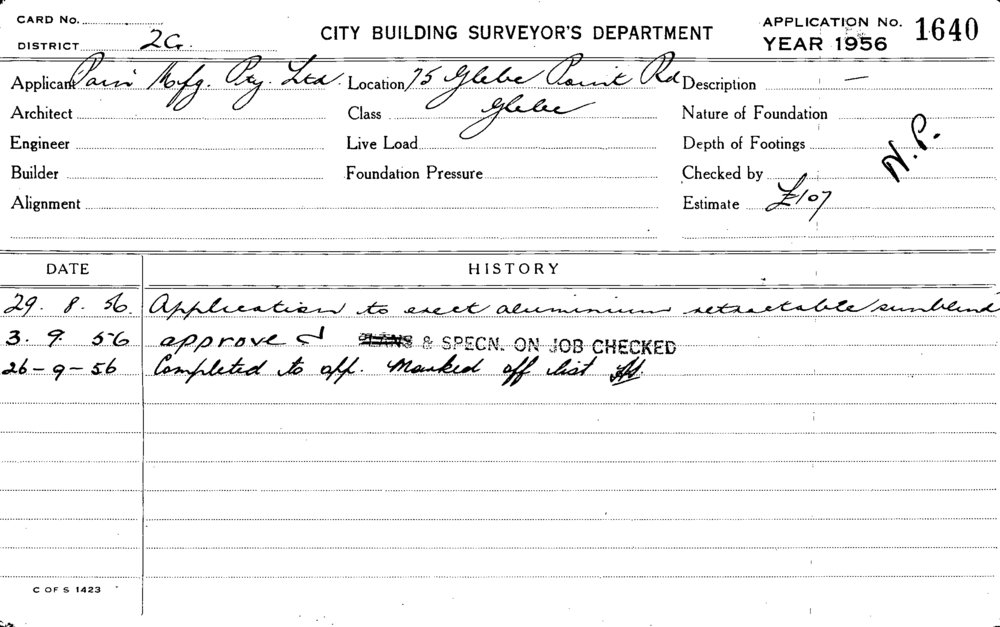 CARD No.
DISTRICT 2G.
CITY BUILDING SURVEYOR'S DEPARTMENT
APPLICATION No. 1640
YEAR 1956
Applicant Mfg. Pty. Ltd. Location 75 Glebe Point Rd Description —
Architect Class Glebe Nature of Foundation
Engineer Live Load Depth of Footings N.P.
Builder Foundation Pressure Checked by
Alignment Estimate £107
DATE HISTORY
29. 8. 56. Application to erect aluminium retractable sunblind
3. 9. 56 approve PLANS & SPECN. ON JOB CHECKED
26-9-56 Completed to app. Marked off list
C OF S 1423